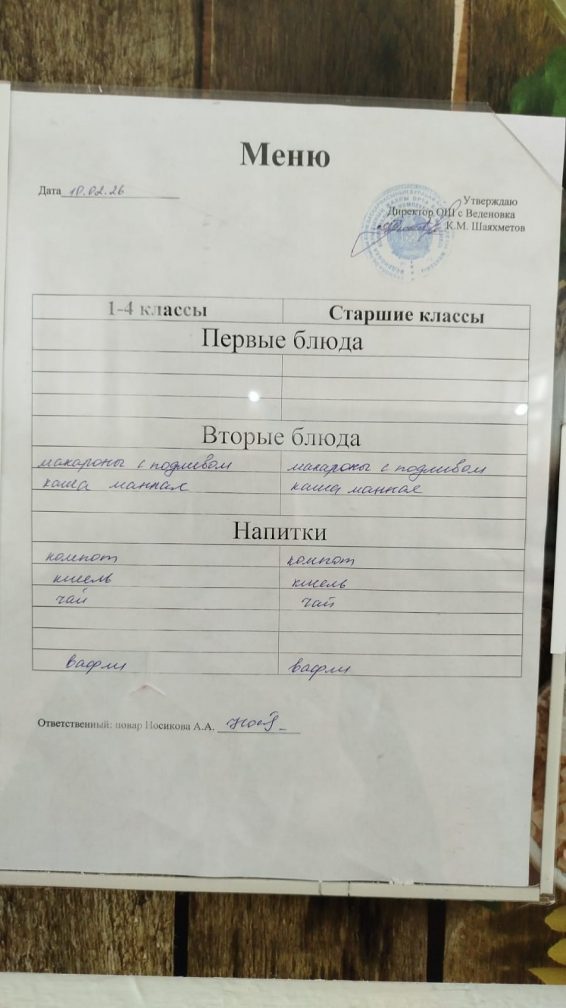 Меню
Дата 10.02.26
Утверждаю
Директор ОШ с Веденовка
К.М. Шаяхметов
1-4 классы Старшие классы
Первые блюда
Вторые блюда
макароны с подливом макароны с подливом
каша манная каша манная
Напитки
компот компот
кисель кисель
чай чай
вафли вафли
Ответственный: повар Носикова А.А.